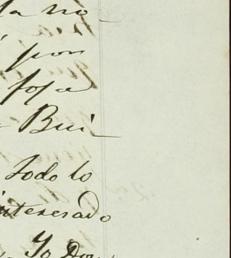 la no
por
foja
Bui
todo lo
interesado
Yo Don